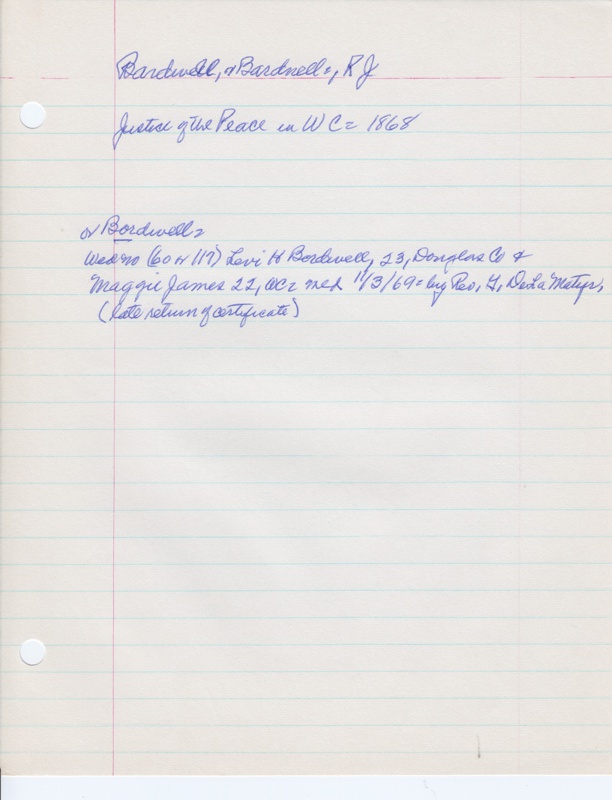 Bardwell, or Bardnell=, R J
Justice of the Peace in W C = 1868
or Bordwell=
Wed no (60 or 117) Levi H Bordwell, 23, Douglas Co &
Maggie James 22, OC= med 11/3/69= by Rev, G, DeLa Matyr,
(late return of certificate)